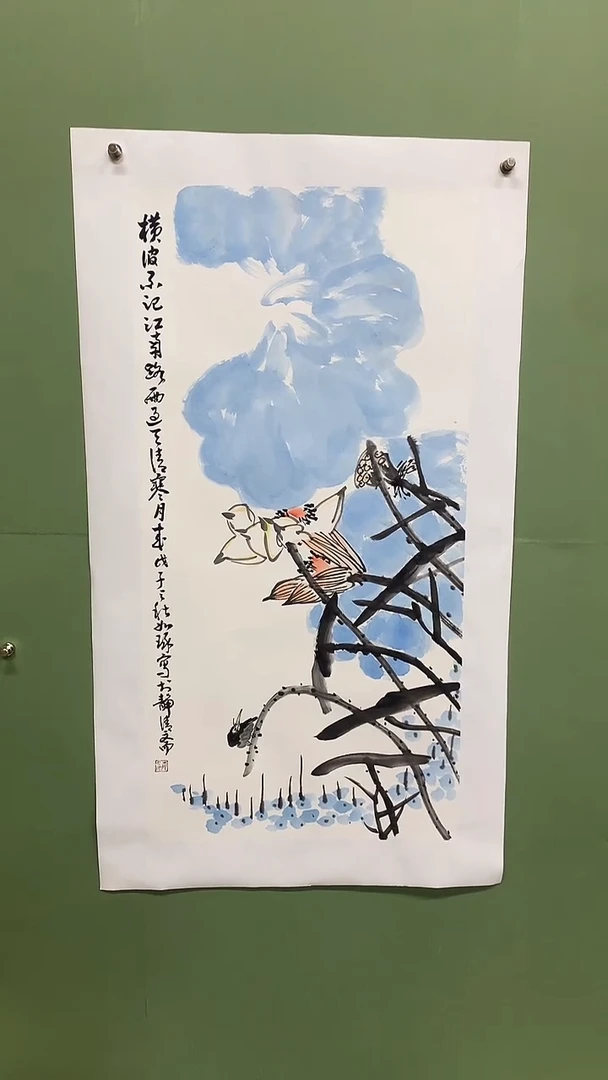 横波不记江南路雨过天清寒月来戊子之秋如琢写于静清斋